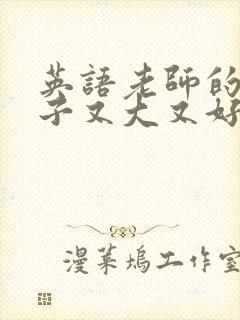 英語老師的
子又大又好
漫葉塢工作室